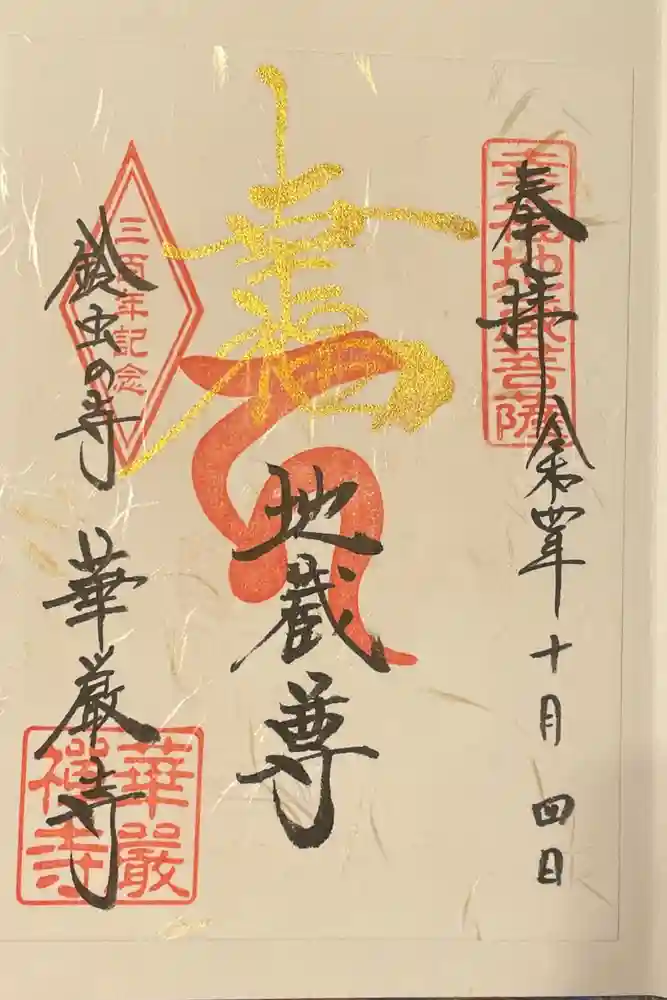 奉拝 令和四年 十月 四日
幸福地蔵菩薩
地蔵尊
三百年記念
鈴虫の寺 華厳寺
華嚴
禅寺